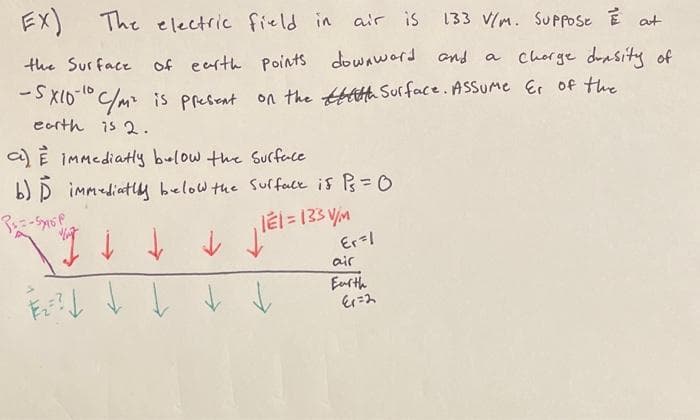 EX) The electric field in air is 133 V/m. Suppose E⃗ at
the Surface of earth points downward and a charge density of
-5x10⁻¹⁰ C/m² is present on the Surface. Assume Er of the
earth is 2.
a) E⃗ immediatly below the surface
b) D⃗ immediatly below the surface if Ps = 0
|E⃗| = 133 V/m
Er=1
air
Earth
Er=2
E⃗₂=?